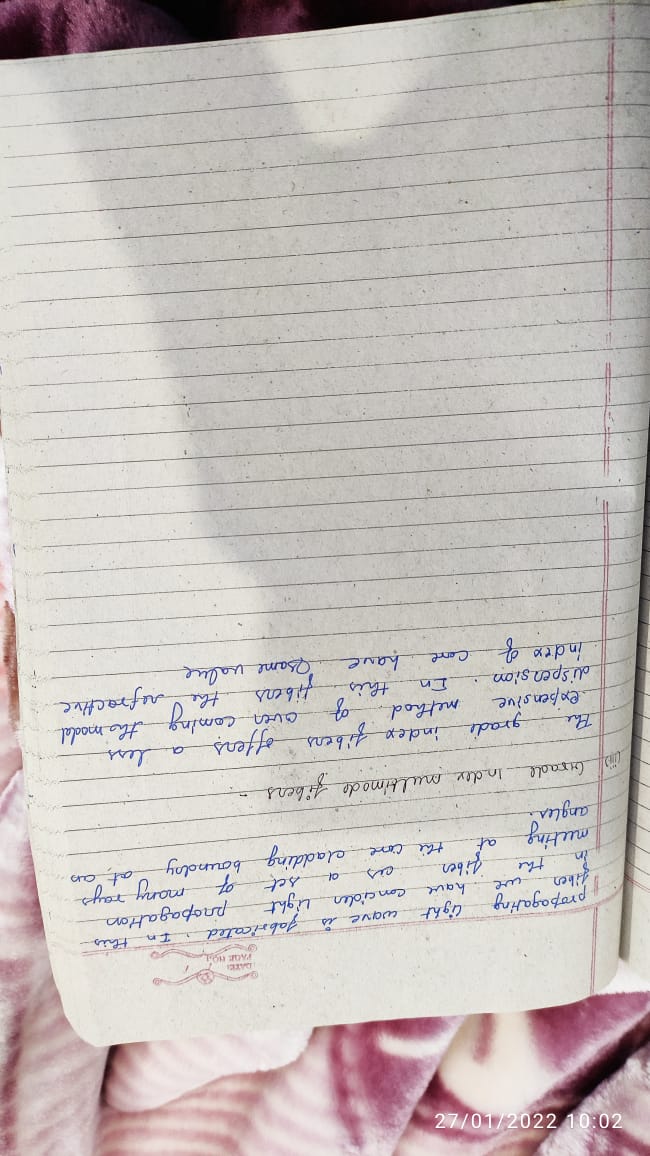 DATE: / /
PAGE NO.:
propagating light wave is fabricated. In this
fiber we have concider light propagation
in the fiber as a set of many rays
meeting at the core cladding boundry at an
angles.
(iii) Grade Index multimode fibers -
The grade index fibers offers a less
expensive method of over coming the model
dispersion. In this fibers the refractive
index of core have same value
27/01/2022 10:02